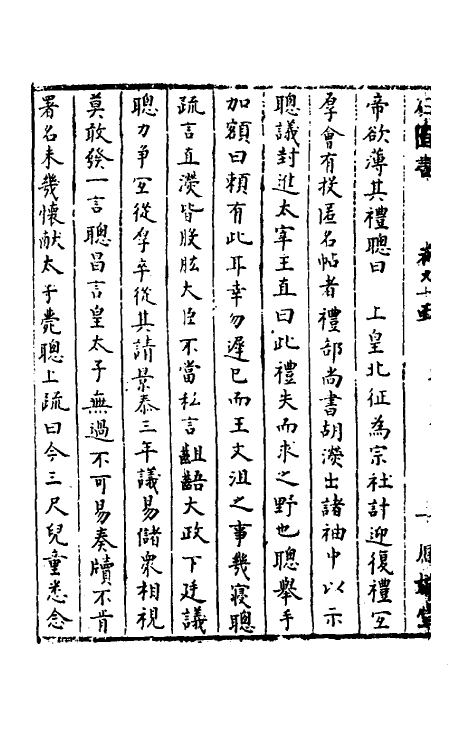 帝欲薄其禮聰曰　上皇北征為宗社計迎復禮宜
厚會有投匿名帖者禮部尚書胡濙出諸袖中以示
聰議封進太宰王直曰此禮失而求之野也聰舉手
加額曰頼有此耳幸勿遲已而王文沮之事幾寝聰
疏言直濙皆股肱大臣不當私言齟齬大政下廷議
聰力爭宜從厚卒從其請景泰三年議易儲衆相視
莫敢發一言聰昌言皇太子無過不可易奏牘不肯
署名未幾懷献太子薨聰上疏曰今三尺兒童悉念